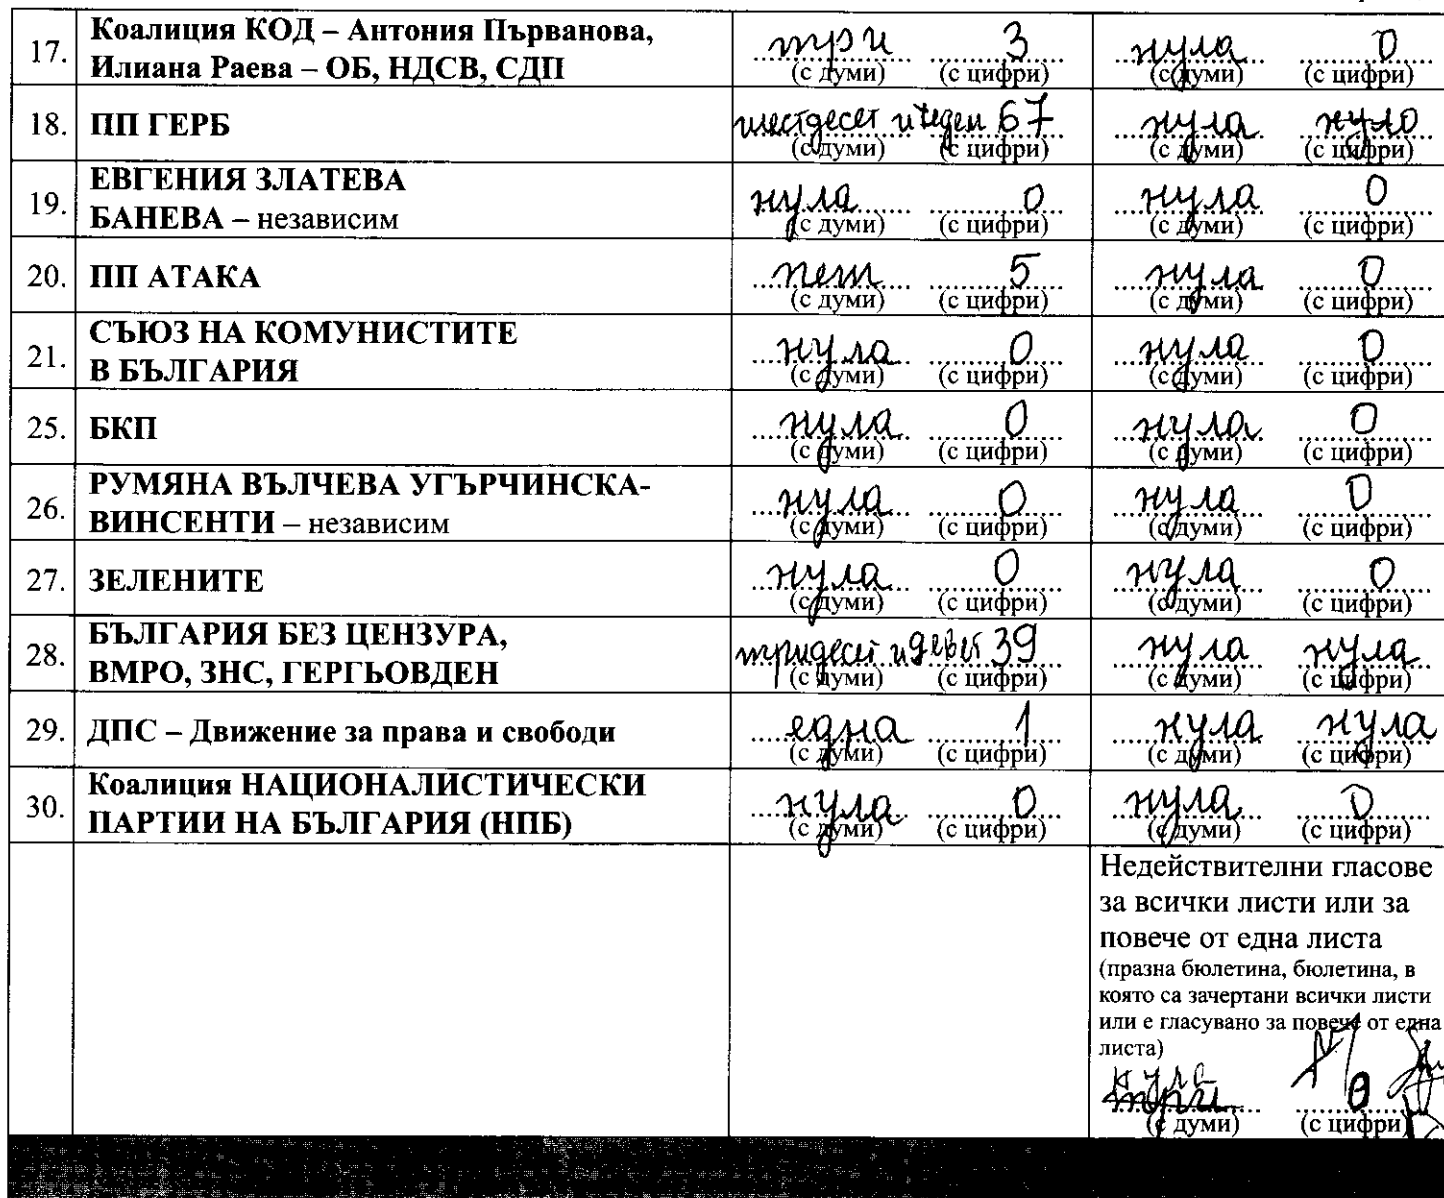 17. Коалиция КОД – Антония Първанова, Илиана Раева – ОБ, НДСВ, СДП три 3 нула 0
(с думи) (с цифри) (с думи) (с цифри)
18. ПП ГЕРБ шестдесет и 67 нула нула
(с думи) (с цифри) (с думи) (с цифри)
19. ЕВГЕНИЯ ЗЛАТЕВА БАНЕВА – независим нула 0 нула 0
(с думи) (с цифри) (с думи) (с цифри)
20. ПП АТАКА пет 5 нула 0
(с думи) (с цифри) (с думи) (с цифри)
21. СЪЮЗ НА КОМУНИСТИТЕ В БЪЛГАРИЯ нула 0 нула 0
(с думи) (с цифри) (с думи) (с цифри)
25. БКП нула 0 нула 0
(с думи) (с цифри) (с думи) (с цифри)
26. РУМЯНА ВЪЛЧЕВА УГЪРЧИНСКА-ВИНСЕНТИ – независим нула 0 нула 0
(с думи) (с цифри) (с думи) (с цифри)
27. ЗЕЛЕНИТЕ нула 0 нула 0
(с думи) (с цифри) (с думи) (с цифри)
28. БЪЛГАРИЯ БЕЗ ЦЕНЗУРА, ВМРО, ЗНС, ГЕРГЬОВДЕН тридесет и девет 39 нула нула
(с думи) (с цифри) (с думи) (с цифри)
29. ДПС – Движение за права и свободи една 1 нула нула
(с думи) (с цифри) (с думи) (с цифри)
30. Коалиция НАЦИОНАЛИСТИЧЕСКИ ПАРТИИ НА БЪЛГАРИЯ (НПБ) нула 0 нула 0
(с думи) (с цифри) (с думи) (с цифри)
Недействителни гласове
за всички листи или за
повече от една листа
(празна бюлетина, бюлетина, в
която са зачертани всички листи
или е гласувано за повече от една
листа)
нула
три 0
(с думи) (с цифри)